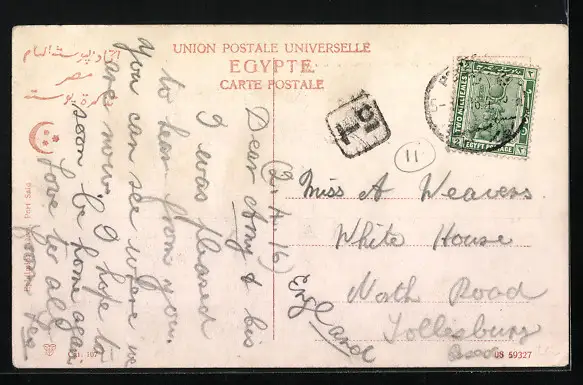 UNION POSTALE UNIVERSELLE
EGYPTE
CARTE POSTALE
اتحاد البوستة العام
مصر
تذكرة بوستة
TWO MILLIEMES
EGYPT POSTAGE
T
11
(2.4.16)
Dear Amy & bis
I was pleased
to hear from you.
You can see where we
are now. I hope to
soon be home again,
Love to all
from
Miss A Weavers
White House
North Road
Tollesbury
Essex
England
Port Said
107
US 59327